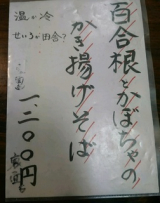 百合根とかぼちゃの
かき揚げそば
温か冷
せいろか田舎?
一、二〇〇円